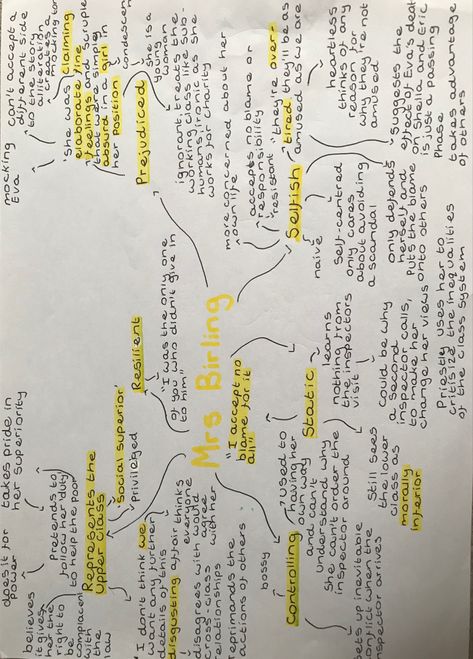 Mrs Birling
"I accept no
blame for it
all"
Resilient
"I was the only one
of you who didn't give in
to him"
'Social superior'
Privileged
Represents the
upper class
does it for
power
takes pride in
her superiority
believes
it gives
her the
right to
be
complacent
with
the
law
Pretends to
follow her duty
to help the poor
"I don't think we
want any further
details of this
disgusting affair"
thinks
everyone
would
agree
with her
disagrees with
cross-class
relationships
reprimands the
actions of others
bossy
Controlling
used to
having her
own way
and can't
understand why
she can't order the
inspector around
sets up inevitable
conflict when the
inspector arrives
Static
learns
nothing from
the inspectors
visit
Could be why
a second
inspector calls,
to make her
change her views
Still sees
the lower
class as
morally
inferior
Priestly uses her to
critisize the inequalities
of the class system
Selfish
naive
self-centred
only cares
about avoiding
a scandal
only defends
herself and
puts the blame
onto others
more concerned about her
own life
accepts no blame or
responsibility
"they're over-
tired they'll be as
amused as we are"
heartless
thinks of any
reason for
why they're not
amused
Suggests the
effect of Eva's death
on Sheila & Eric
is just a passing
phase
takes advantage
of others
Prejudiced
she is a
young
woman
ignorant, treats the
working class like sub-
humans, ironic as she
works for a charity
"she was claiming
elaborate fine
feelings and scruples
that were simply
absurd in a girl in
her position"
can't accept a
different side
to the story
alliteration
creates a
mocking
mocking
Eva